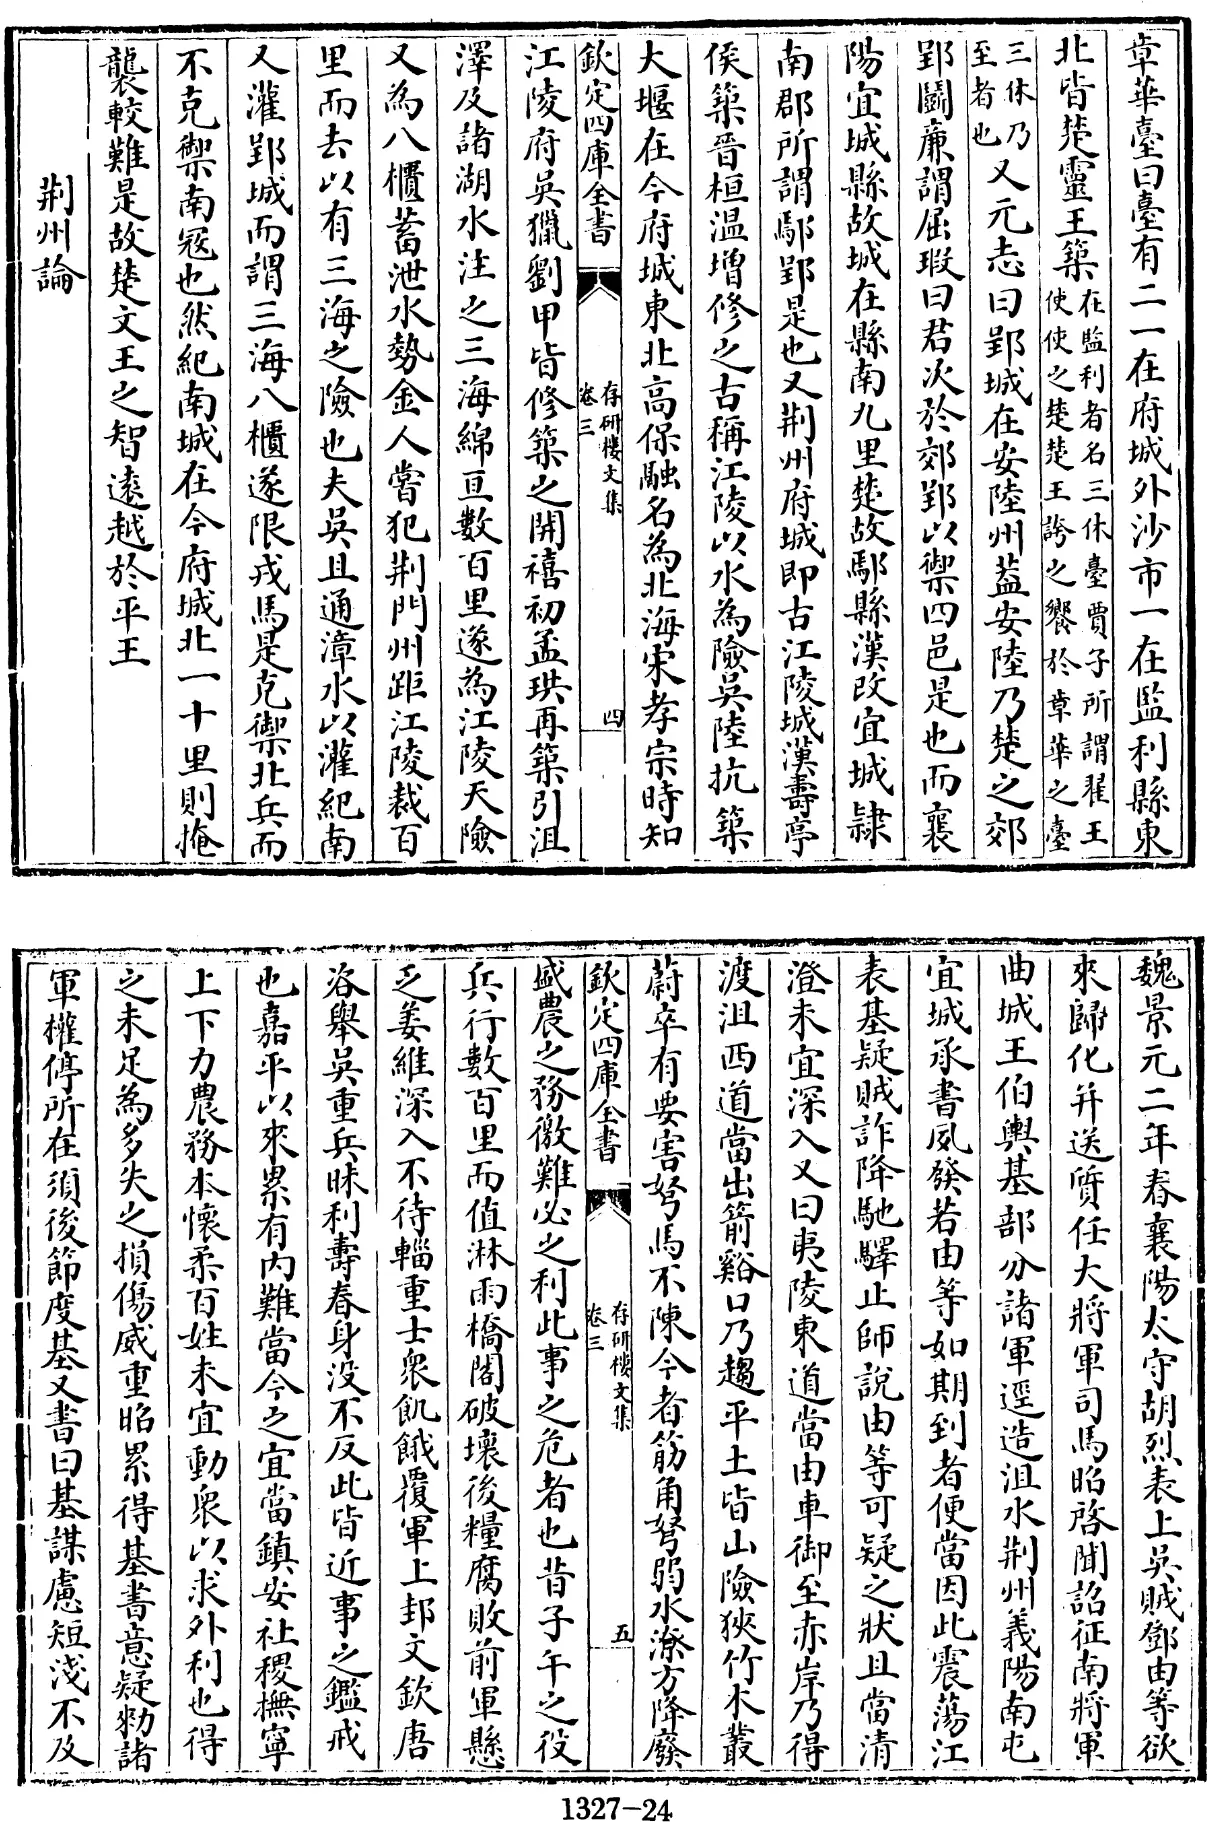 章華臺曰臺有二一在府城外沙市一在監利縣東
北皆楚靈王築在監利者名三休臺賈子所謂翟王
使使之楚楚王誇之饗於章華之臺
三休乃
至者也又元志曰郢城在安陸州葢安陸乃楚之郊
郢鬭廉謂屈瑕曰君次於郊郢以禦四邑是也而襄
陽宜城縣故城在縣南九里楚故鄢縣漢改宜城隷
南郡所謂鄢郢是也又荆州府城即古江陵城漢壽亭
侯築晉桓温増修之古稱江陵以水為險吳陸抗築
大堰在今府城東北高保融名為北海宋孝宗時知
欽定四庫全書
存研樓文集
卷三
四
江陵府吳獵劉甲皆修築之開禧初孟珙再築引沮
澤及諸湖水注之三海綿亘數百里遂為江陵天險
又為八櫃蓄泄水勢金人嘗犯荆門州距江陵裁百
里而去以有三海之險也夫吳且通漳水以灌紀南
又灌郢城而謂三海八櫃遂限戎馬是克禦北兵而
不克禦南冦也然紀南城在今府城北一十里則掩
襲較難是故楚文王之智遠越於平王
荆州論
魏景元二年春襄陽太守胡烈表上吳賊鄧由等欲
來歸化并送質任大將軍司馬昭啓聞詔征南將軍
曲城王伯輿基部分諸軍逕造沮水荆州義陽南屯
宜城承書夙發若由等如期到者便當因此震蕩江
表基疑賊詐降馳驛止師說由等可疑之狀且當清
澄未宜深入又曰夷陵東道當由車御至赤岸乃得
渡沮西道當出箭谿口乃趨平土皆山險狹竹木叢
蔚卒有要害弩馬不陳今者筋角弩弱水潦方降廢
欽定四庫全書
存研樓文集
卷三
五
盛農之務徼難必之利此事之危者也昔子午之役
兵行數百里而值淋雨橋閣破壞後糧腐敗前軍懸
乏姜維深入不待輜重士衆飢餓覆軍上邽文欽唐
洛舉吳重兵昧利壽春身没不反此皆近事之鑑戒
也嘉平以來累有内難當今之宜當鎮安社稷撫寧
上下力農務本懷柔百姓未宜動衆以求外利也得
之未足為多失之損傷威重昭累得基書意疑勑諸
軍權停所在須後節度基又書曰基謀慮短淺不及
1327-24